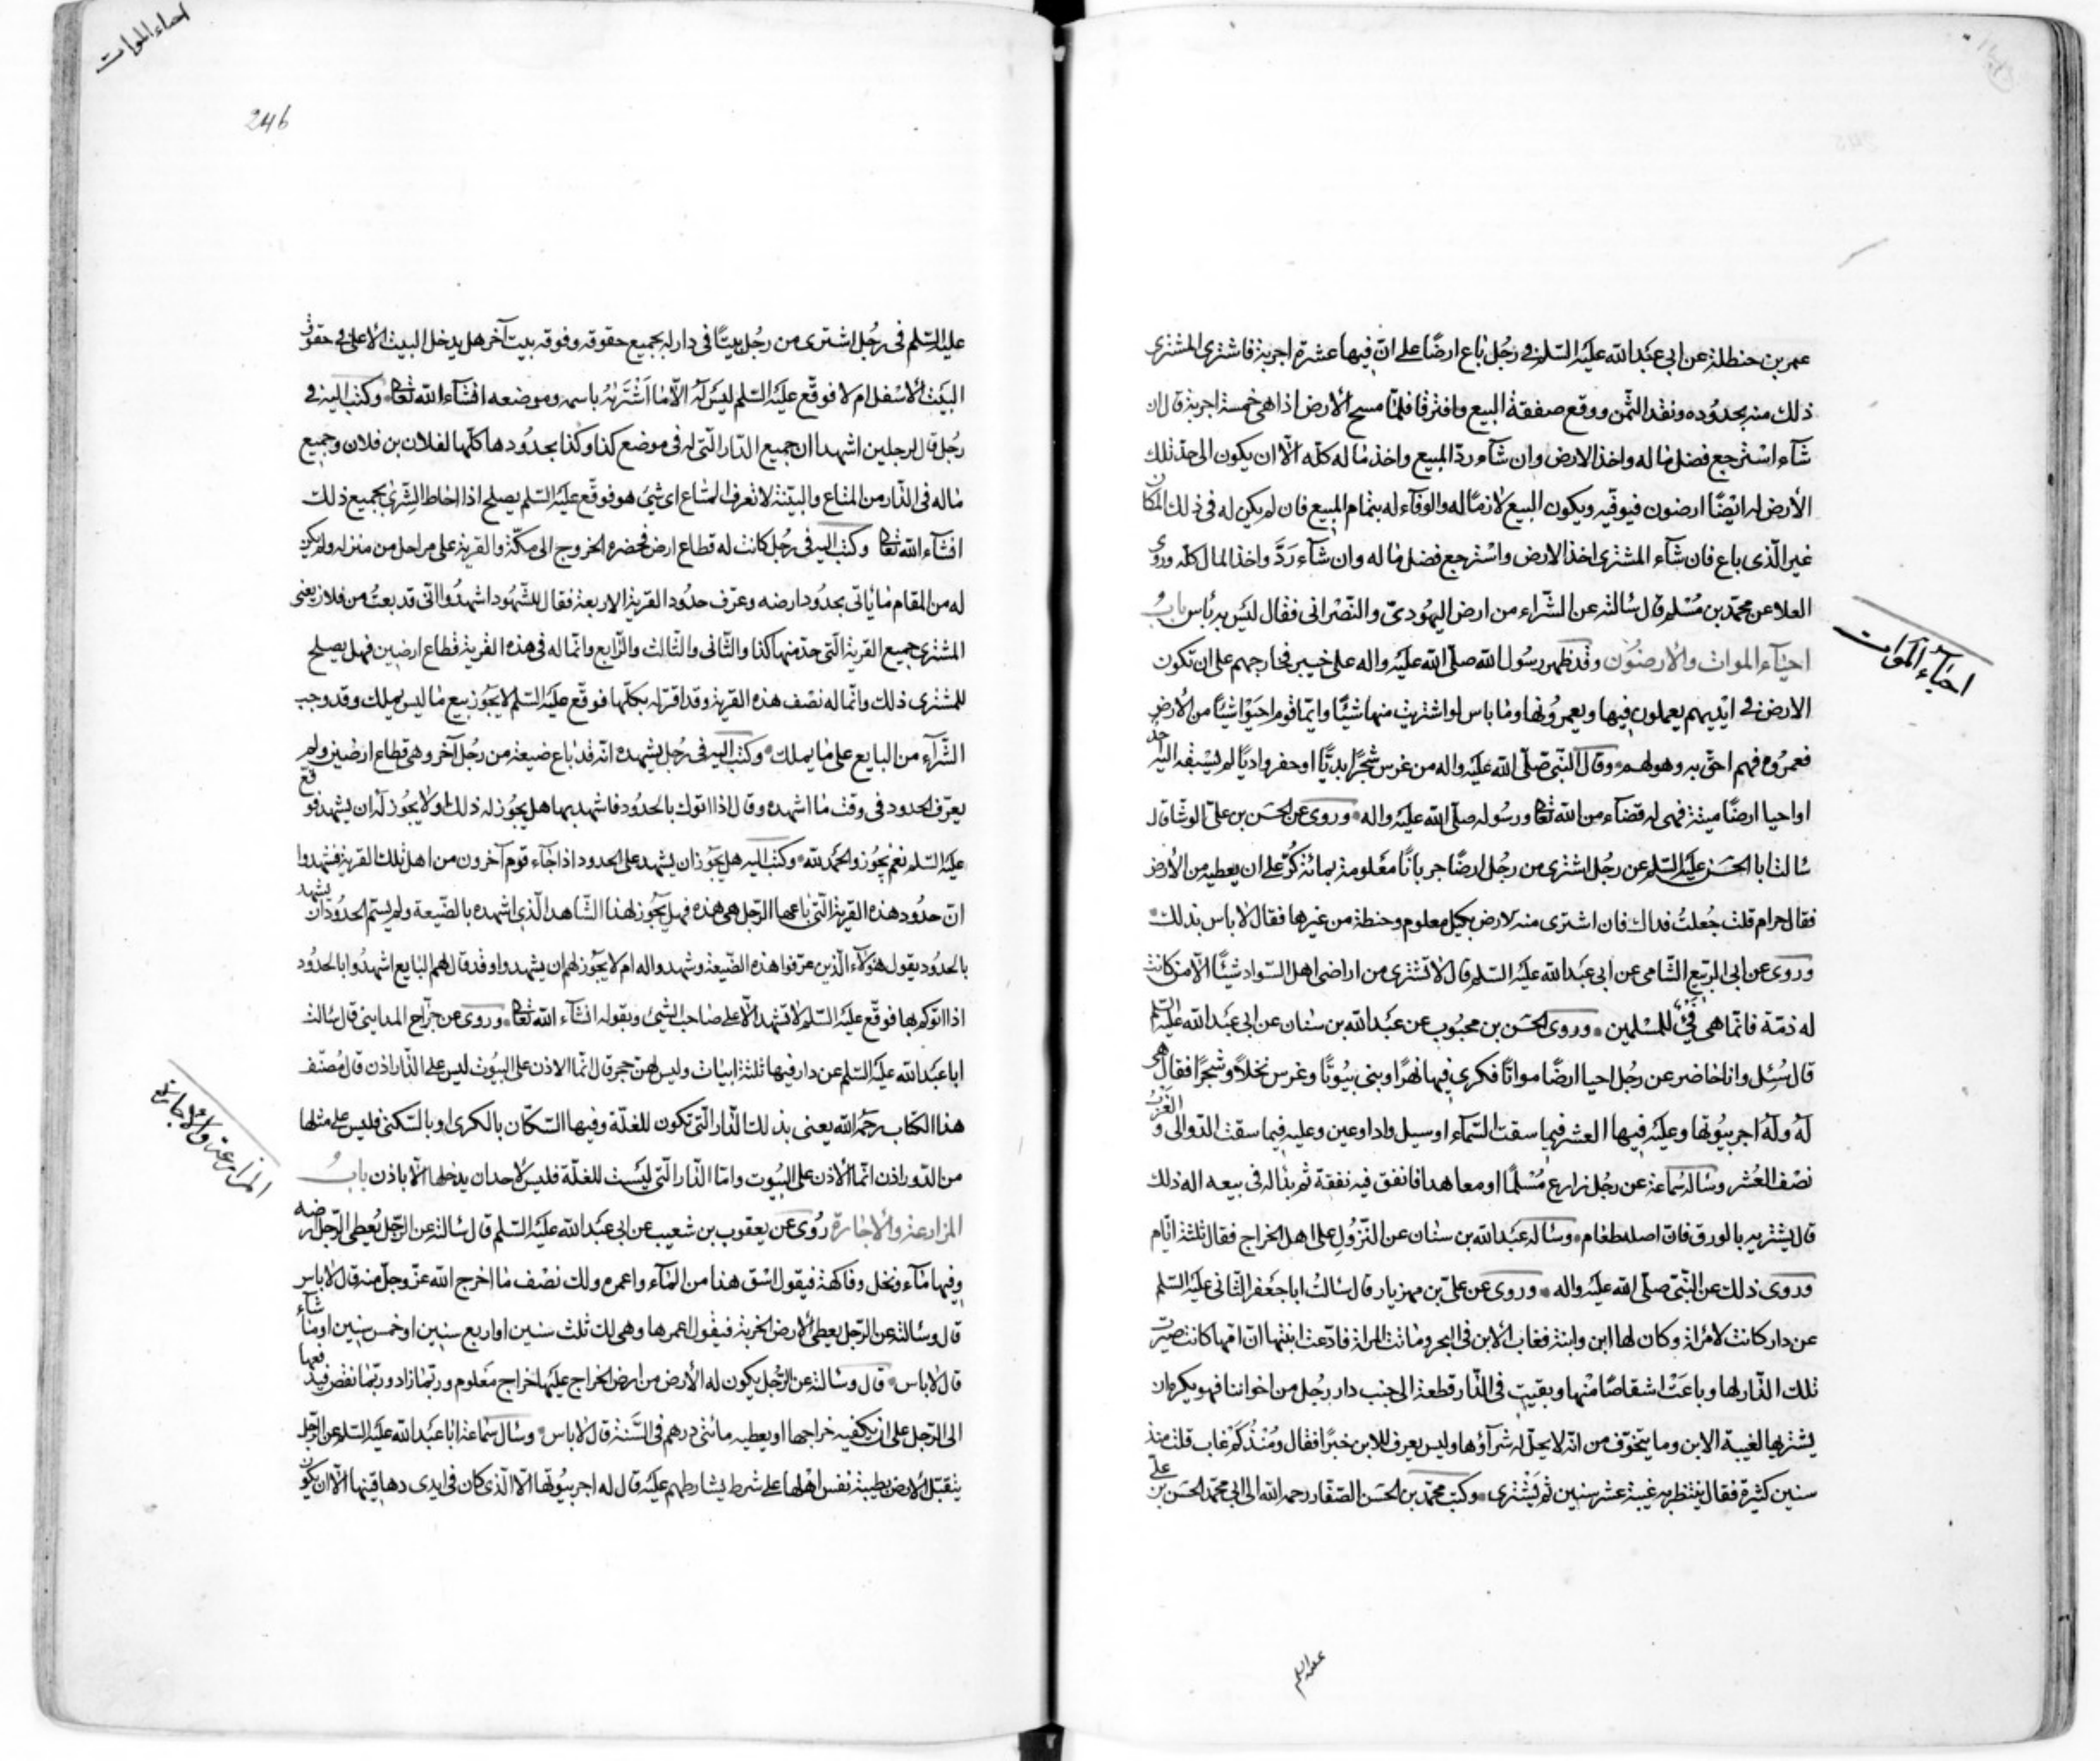 عمر بن حنظلة عن ابى عبد الله عليه السلم فى رجل باع ارضا على ان فيها عشرة اجربة فاشترى المشترى
ذلك منه بحدوده ونقد الثمن ووقع صفقة البيع وافترقا فلما مسح الارض اذا هى خمسة اجربة قال ان
شآء استرجع فضل ماله واخذ الارض وان شآء رد المبيع واخذ ماله كله الا ان يكون الى حد تلك
الارض له ايضا ارضون فيوفيه ويكون البيع لازما له والوفآء له بتمام المبيع فان لم يكن له فى ذلك المكان
غير الذى باع فان شآء المشترى اخذ الارض واسترجع فضل ماله وان شآء رد واخذ المال كله وروى
العلا عن محمد بن مسلم قال سالته عن الشراء من ارض اليهودى والنصرانى فقال ليس به باس باب
احيآء الموات والارضون وقد ظهر رسول الله صلى الله عليه واله على خيبر فخارجهم على ان تكون
الارض فى ايديهم يعملون فيها ويعمرونها وما باس لو اشتريت منها شيئا وايما قوم احيوا شيئا من الارض
فعمروه فهم احق به وهو لهم وقال النبى صلى الله عليه واله من غرس شجرا بديا او حفر واديا لم يسبقه اليه احد
او احيا ارضا ميتة فهى له قضآء من الله تعا ورسوله صلى الله عليه واله وروى عن الحسن بن على الوشا قال
سالت ابا الحسن عليه السلم عن رجل اشترى من رجل ارضا جربانا معلومة بمائة كر على ان يعطيه من الارض
فقال حرام قلت جعلت فداك فان اشترى منه لارض بكيل معلوم وحنطة من غيرها فقال لا باس بذلك
وروى عن ابى الربيع الشامى عن ابى عبد الله عليه السلم قال لا تشترى من اراضى اهل السواد شيئا الا من كانت
له ذمة فانما هى فئ للمسلمين وروى الحسن بن محبوب عن عبد الله بن سنان عن ابى عبد الله عليه السلم
قال سئل وانا حاضر عن رجل احيا ارضا مواتا فكرى فيها نهرا وبنى بيوتا وغرس نخلا وشجرا فقال هى
له وله اجر بيوتها وعليه فيها العشر فيما سقت السمآء او سيل واد او عين وعليه فيما سقت الدوالى والغرب
نصف العشر وساله سماعة عن رجل زارع مسلما او معاهدا فانفق فيه نفقة ثم بدا له فى بيعه اله ذلك
قال يشتريه بالورق فان اصله طعام وساله عبد الله بن سنان عن النزول على اهل الخراج فقال ثلثة ايام
وروى ذلك عن النبى صلى الله عليه واله وروى عن على بن مهزيار قال سالت ابا جعفر الثانى عليه السلم
عن دار كانت لامراة وكان لها ابن وابنة فغاب الابن فى البحر وماتت المراة فادعت ابنتها ان امها كانت صيرت
تلك الدار لها وباعت اشقاصا منها وبقيت فى الدار قطعة الى جنب دار رجل من اخواننا فهو يكره ان
يشتريها لغيبة الابن وما يتخوف من انه لا يحل له شرآؤها وليس يعرف للابن خبرا فقال ومنذ كم غاب قلت منذ
سنين كثيرة فقال ينتظر به غيبة عشر سنين ثم يشترى وكتب محمد بن الحسن الصفار رحمه الله الى ابى محمد الحسن بن على
احيآء الموات
احياء الموات
246
عليه السلم فى رجل اشترى من رجل بيتا فى دار له بجميع حقوقه وفوقه بيت آخر هل يدخل البيت الاعلى فى حقوق
البيت الاسفل ام لا فوقع عليه السلم ليس له الا ما اشتراه باسمه وموضعه انشآء الله تعا وكتب اليه فى
رجل قال لرجلين اشهدا ان جميع الدار التى له فى موضع كذا وكذا بحدودها كلها لفلان بن فلان وجميع
ماله فى الدار من المتاع والبينة لا تعرف المتاع اى شئ هو فوقع عليه السلم يصلح اذا احاط الشرى بجميع ذلك
انشآء الله تعا وكتب اليه فى رجل كانت له قطاع ارض فحضره الخروج الى مكة والقرية على مراحل من منزله ولم يكن
له من المقام ما ياتى بحدود ارضه وعرف حدود القرية الاربعة فقال للشهود اشهدوا انى قد بعت من فلان يعنى
المشترى جميع القرية التى حد منها كذا والثانى والثالث والرابع وانما له فى هذه القرية قطاع ارضين فهل يصلح
للمشترى ذلك وانما له نصف هذه القرية وقد اقر له بكلها فوقع عليه السلم لا يجوز بيع ما ليس يملك وقد وجب
الشرآء من البايع على ما يملك وكتب اليه فى رجل يشهده انه قد باع ضيعة من رجل آخر وهى قطاع ارضين ولم
يعرف الحدود فى وقت ما اشهده وقال اذا اتوك بالحدود فاشهد بها هل يجوز له ذلك او لا يجوز له ان يشهد فوقع
عليه السلم نعم يجوز والحمد لله وكتب اليه هل يجوز ان يشهد على الحدود اذا جآء قوم آخرون من اهل تلك القرية فشهدوا
ان حدود هذه القرية التى باعها الرجل هى هذه فهل يجوز لهذا الشاهد الذى اشهده بالضيعة ولم يسم الحدود ان يشهد
بالحدود بقول هؤلآء الذين عرفوا هذه الضيعة وشهدوا له ام لا يجوز لهم ان يشهدوا وقد قال لهم البايع اشهدوا بالحدود
اذا اتوكم بها فوقع عليه السلم لا تشهد الا على صاحب الشئ وبقوله انشآء الله تعا وروى عن جراح المداينى قال سالت
ابا عبد الله عليه السلم عن دار فيها ثلثة ابيات وليس لهن حجر قال انما الاذن على البيوت ليس على الدار اذن قال مصنف
هذا الكتاب رحمه الله يعنى بذلك الدار التى تكون للغلة وفيها السكان بالكرى او بالسكنى فليس على مثلها
من الدور اذن انما الاذن على البيوت واما الدار التى ليست للغلة فليس لاحد ان يدخلها الا باذن باب
المزارعة والاجارة روى عن يعقوب بن شعيب عن ابى عبد الله عليه السلم قال سالته عن الرجل يعطى الرجل ارضه
وفيها مآء ونخل وفاكهة فيقول اسق هذا من المآء واعمره ولك نصف ما اخرج الله عز وجل منه قال لا باس
قال وسالته عن الرجل يعطى الارض الخربة فيقول اعمرها وهى لك ثلث سنين او اربع سنين او خمس سنين او ما شآء
قال لا باس قال وسالته عن الرجل يكون له الارض من ارض الخراج عليها خراج معلوم وربما زاد وربما نقص فيدفعها
الى الرجل على ان يكفيه خراجها او يعطيه مائتى درهم فى السنة قال لا باس وسال سماعة ابا عبد الله عليه السلم عن الرجل
يتقبل الارض بطيبة نفس اهلها على شرط يشارطهم عليه قال له اجر بيوتها الا الذى كان فى ايدى دهاقينها الا ان يكون
المزارعة والاجارة